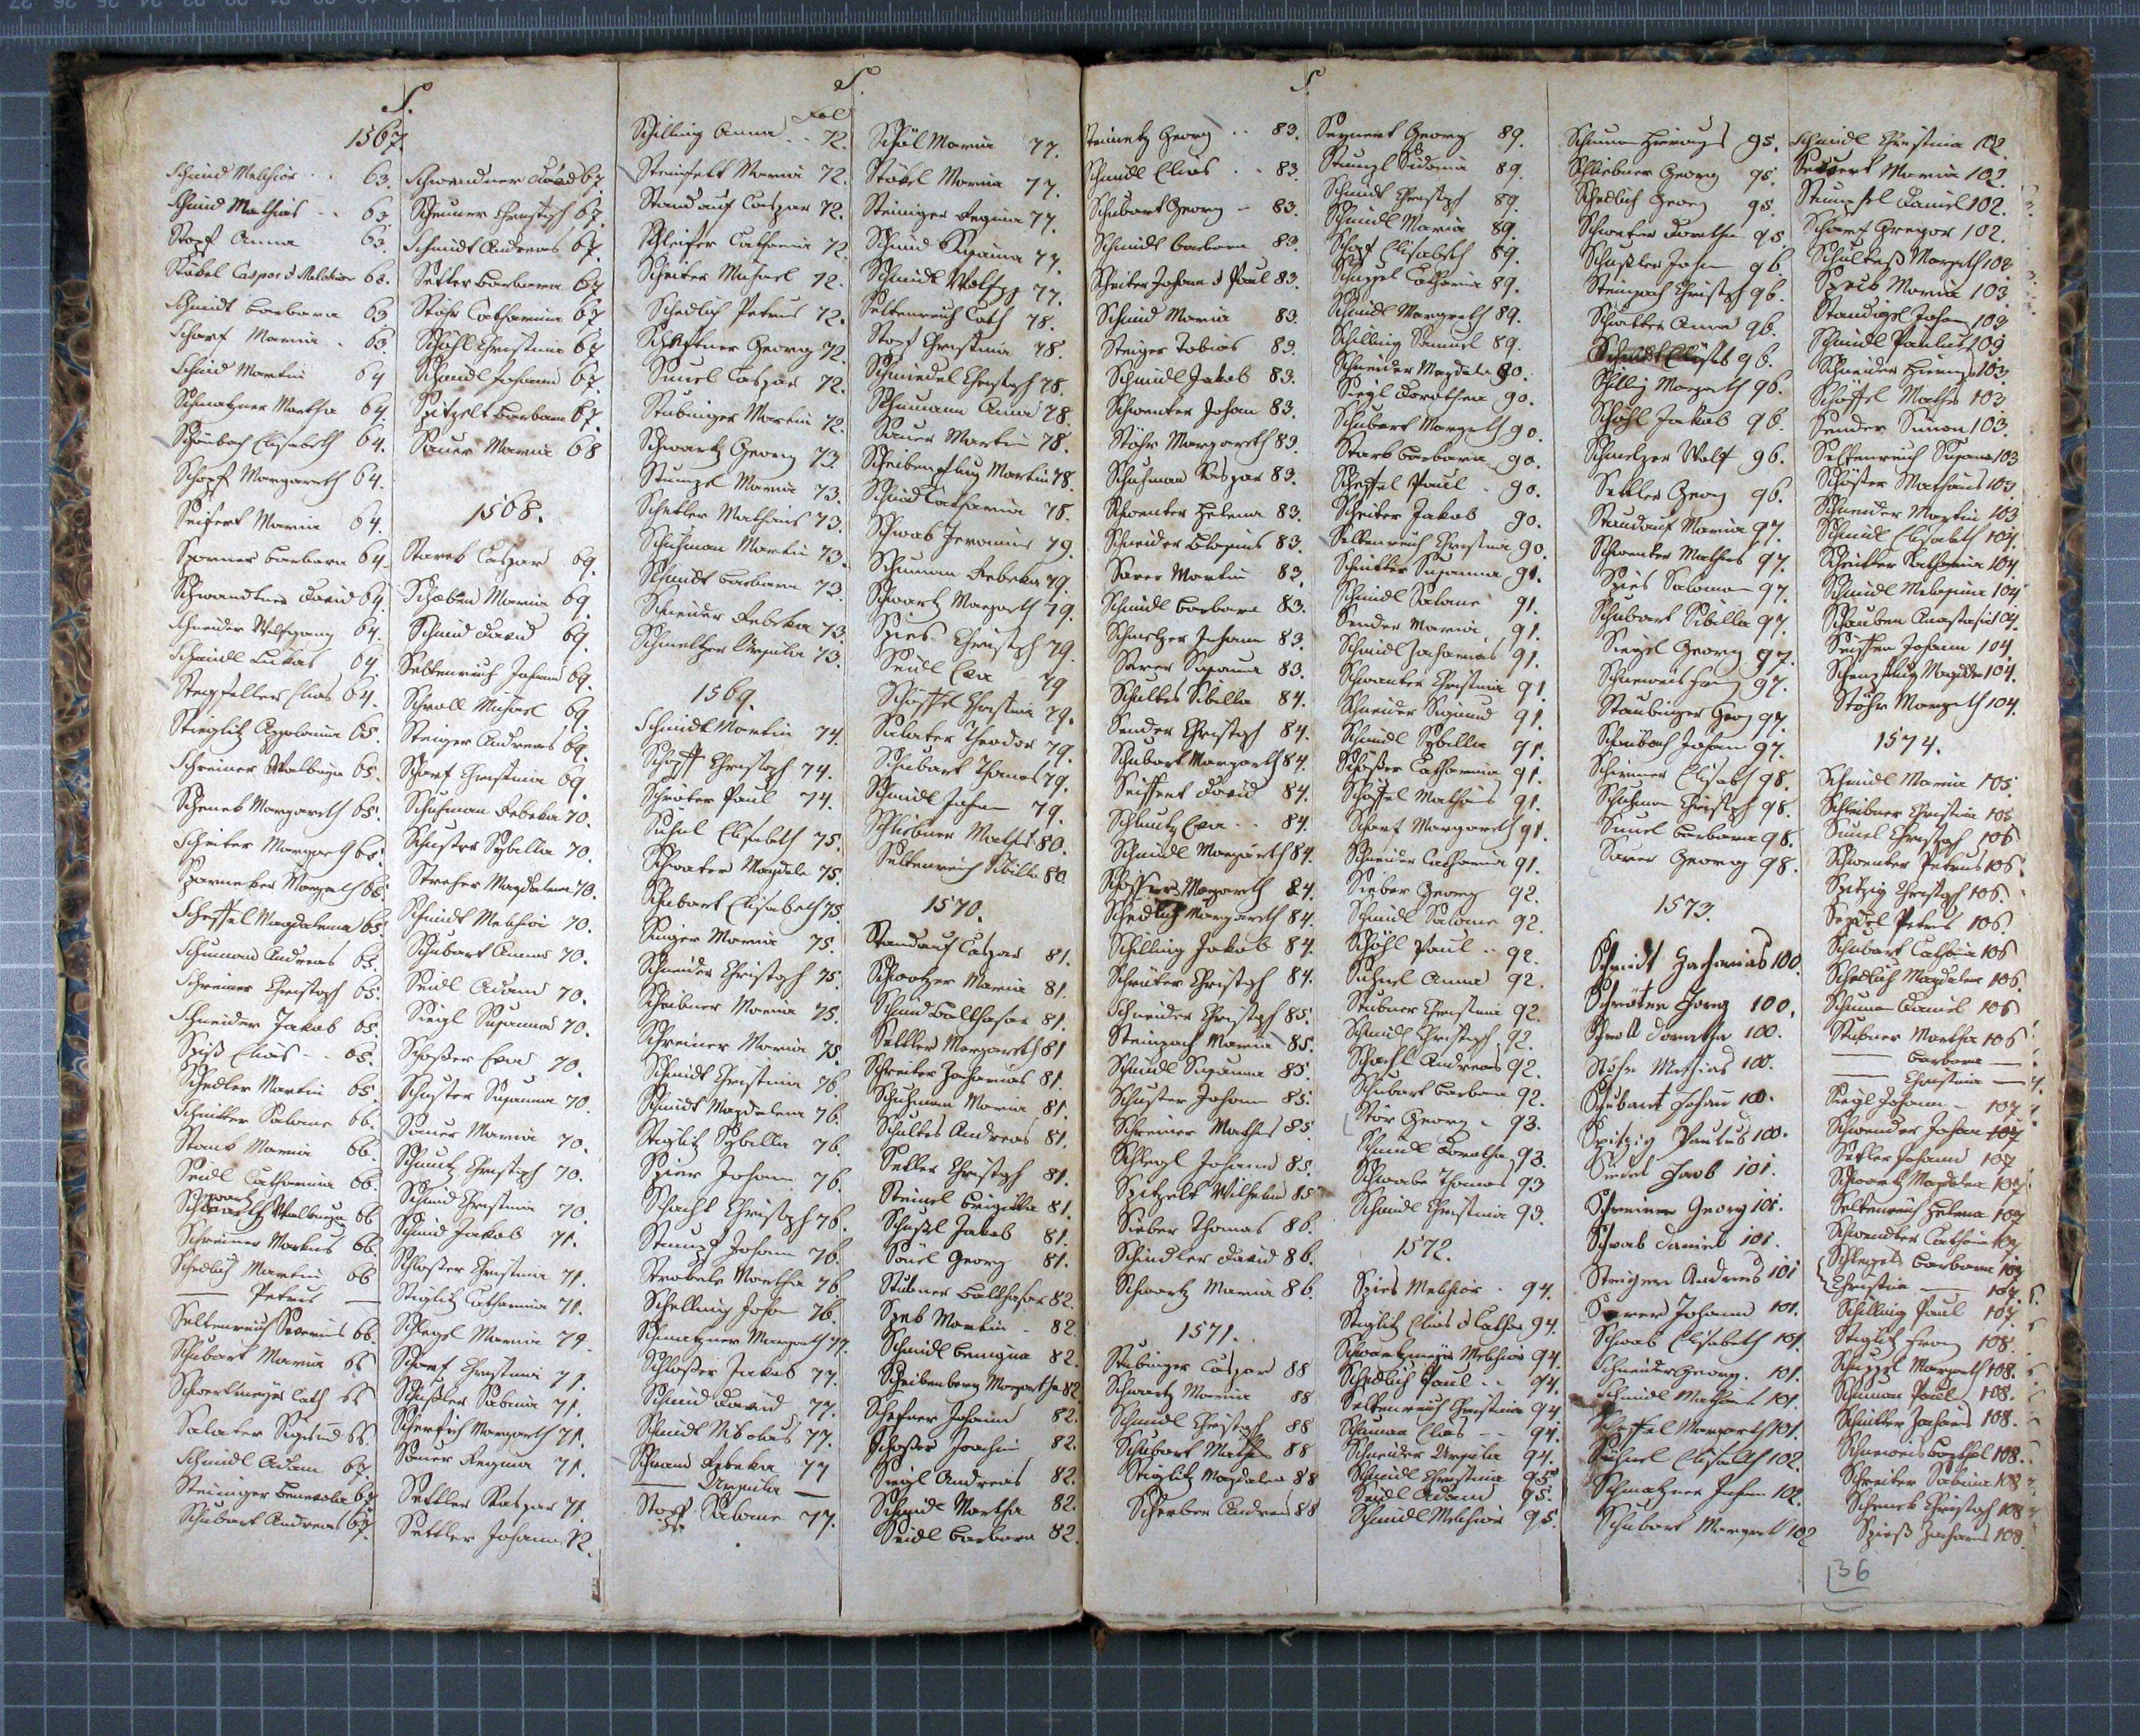 S.
1567
Schmid Melchior . . 63.
Schmid Mathias . . 63
Stopf Anna 63.
Stöckel Caspar & Melchior 63.
Schmidt Barbara 63
Scharf Maria . 63.
Schmid Martin 64
Schmatzner Martha 64
Schönbach Elisabeth 64.
Schopf Margareth 64.
Seifert Maria 64.
Sporner Barbara 64.
Schwandtner David 64.
Schneider Wolfgang 64.
Schmidl Lukas 64
Stieglitz Appolonia 65.
Schreiner Walburga 65.
Schenck Margareth 65.
Schreiter Margareth 65.
Scheffel Magdalena 65.
Schuman Andreas 65.
Schreiner Christoph 65.
Schneider Jakob 65
Spiß Elias - . 65.
Schedler Martin 65.
Schnitter Salome 66.
Stark Maria 66.
Seidl Catharina 66.
Schwartz Walburga 66
Schreiner Markus 66.
Schedlich Martin 66
— Petrus —
Seltenreich Severinus 66.
Schubart Maria 66
Salater Sigmund 66.
Schmidl Adam 67.
Schubart Andreas 67.
Schwandner David 67
Schreiner Christoph 67.
Schmidt Andreas 67.
Setler Barbara 67
Stöhr Catharina 67
Schöhl Christina 67
Schmidl Johann 67
Spitzelt Barbara 67.
Sauer Maria 68
1568.
Starck Caspar 69.
Schaben Maria 69.
Schmid David 69.
Seltenreich Johann 69.
Schroll Michael 69.
Steiger Andreas 69.
Scharf Christina 69.
Schuhman Rebeka 70.
Schuster Sybilla 70.
Streher Magdalena 70.
Schmidt Melchior 70.
Schubart Anna 70.
Seidl Adam 70.
Siegl Susanna 70.
Schoßer Eva 70.
Schuster Susanna 70.
Sauer Maria 70.
Schmutz Christoph 70.
Schmid Christina 70.
Schmid Jakob 71.
Schloßer Christina 71.
Stieglitz Catharina 71.
Schlegel Maria 71.
Scharf Christina 71.
Schüßler Sabina 71.
Sauer Regina 71.
Settler Kaspar 71.
Settler Johann 72.
S.
Fol
Schilling Anna . . 72.
Steinfelt Maria 72.
Staudauf Caspar 72.
Schleifer Catharina 72.
Schreiter Michael 72.
Schedlich Petrus 72.
Schäftner Georg 72.
Simel Caspar 72.
Stubinger Martin 72.
Schwartz Georg 73.
Stumpel Maria 73.
Schetler Mathäus 73.
Schuhman Martin 73.
Schmidt Barbara 73.
Schneider Rebeka 73.
Schmeltzer Ursula 73.
1569.
Schmidt Martin 74.
Schopff Christoph 74.
Schröter Paul 74.
Suhnl Elisabeth 75.
Schwater Magdale 75.
Schubart Elisabeth 75.
Singer Maria 75.
Schneider Christoph 75.
Schreibner Maria 75.
Schreiner Maria 75.
Schmidt Christina 76.
Schmidt Magdalena 76.
Stieglitz Sybilla 76.
Spies Johann 76.
Schacht Christoph 76.
Stumpf Johann 76.
Strobels Martha 76.
Schelling Johan 76.
Schmatzner Margareth 77.
Schloßer Jakob 77.
Schmid David 77.
Schmidt Nikolaus 77.
Schuman Rebeka 77
— Ursula —
Stopff Salome 77.
Schöl Maria 77.
Stöckel Maria 77.
Steiniger Regina 77.
Schmid Susanna 77.
Schmidt Wolfg 77.
Seltenreich Cath 78.
Stopf Christina 78.
Schmidel Christoph 78.
Schumann Anna 78.
Sauer Martin 78.
Scheibenpflug Martin 78.
Schmid Catharina 78.
Schwab Jeronimus 79.
Schuman Rebeka 79.
Schwartz Margareth 79.
Spies Christoph 79.
Seidl Eva 79
Schöffel Christina 79.
Salater Theodor 79.
Schubart Thomas 79.
Schmidl Johan 79.
Schliebner Mathes 80.
Seltenreich Sibilla 80.
1570.
Staudauf Caspar 81.
Schwartzer Maria 81.
Schmid Balthasar 81.
Settler Margareth 81
Schreiter Zacharias 81.
Schuhman Maria 81.
Schultes Andreas 81.
Setler Christoph 81.
Steinel Brigitta 81.
Schüßl Jakob 81.
Sölel Georg 81.
Stübner Balthasar 82.
Speck Martin . 82.
Schmidl Benigna 82.
Scheibenberg Margartha 82
Schefner Johann 82.
Schoßer Joachim 82.
Siegl Andreas 82.
Schmidt Martha 82.
Seidl Barbara 82.
S.
Steinetz Georg . . 83.
Schmidl Elias . . 83.
Schubart Georg - 83.
Schmidt Barbara 83.
Schreiter Johann & Paul 83.
Schmid Maria 83.
Steiger Tobias 83.
Schmidl Jakob 83.
Schwenter Johan 83.
Stöhr Margareth 83.
Schuhman Kaspar 83.
Schwenter Helena 83.
Schneider Blasius 83.
Sarer Martin 83.
Schmidl Barbara 83.
Schmeltzer Johann 83.
Sarer Susanna 83.
Schultes Sibilla 84.
Sender Christoph 84.
Schubart Margareth 84.
Seiffert David 84.
Schmutz Eva . . 84.
Schmidl Margareth 84.
Schoffner Margareth 84.
Schedlich Margareth 84.
Schilling Jakob 84.
Schröter Christoph 84.
Schneider Christoph 85.
Steinbach Maria 85.
Schmidl Susanna 85.
Schuster Johann 85.
Schreiner Mathes 85.
Schlegl Johann 85.
Spitzelt Wilhelm 85
Sieber Thomas 86.
Schindler David 86.
Schwartz Maria 86.
1571.
Stubinger Caspar 88
Schwartz Maria 88
Schmidl Christoph 88
Schubart Mathes 88
Stieglitz Magdalena 88
Scherber Andreas 88
Seynert Georg 89.
Stumpl Sidonia 89.
Schmidt Christoph 89.
Schmidl Maria 89.
Schopf Elisabeth 89.
Schuppel Catharina 89.
Schmidl Margareth 89.
Schilling Samuel 89.
Schneider Magdale 90.
Siegl Dorothea 90.
Schubert Margreth 90.
Stark Barbara 90.
Scheffel Paul . 90.
Schreiter Jakob 90.
Seltenreich Christina 90.
Schnitter Susanna 91.
Schmidl Salome 91.
Sender Maria 91.
Schmidl Zacharias 91.
Schwanter Christina 91.
Schneider Sigmund 91.
Schmidl Sybilla 91.
Schoßer Catharina 91.
Schöffel Mathäus 91.
Scharf Margareth 91.
Schneider Catharina 91.
Sieber Georg 92.
Schmidl Salome 92.
Schöhl Paul . . 92.
Suhnel Anna 92.
Stubner Christina 92.
Schmidl Christoph 92.
Schachl Andreas 92.
Schubart Barbara 92.
Stör Georg . 93.
Schmidl Dorothea 93.
Schwabe Thomas 93
Schmidl Christina 93.
1572.
Spies Melchior . 94.
Stieglitz Elias & Cathar 94.
Schwartzmeyer Melchior 94.
Schedlich Paul . . 94.
Seltenreich Christina 94
Schuman Elias - . 94.
Schneider Ursula 94.
Schmidl Christina 95.
Seidl Adam 95.
Schmidl Melchior 95.
Schuman Hieronymus 95.
Schliebner Georg 95.
Schedlich Georg 95.
Schwater Dorothea 95.
Schußler Johan 96.
Steinbach Christoph 96.
Schnitter Anna 96.
Schmidt Elisab 96.
Schillig Margareth 96.
Schöhl Jakob 96.
Schmelzer Wolf 96.
Settler Georg 96.
Staudauf Maria 97.
Schwenter Mathes 97.
Spies Salomon 97.
Schubart Sibilla 97.
Siegel Georg 97.
Staubinger Georg 97.
Schönbach Johan 97.
Schirmer Elisab 98.
Schuhman Christoph 98.
Simel Barbara 98.
Sarer Georg 98.
1573.
Schmidt Zacharias 100.
Schröter Georg 100.
Schroll Dorothea 100.
Stöhr Mathias 100.
Schubart Johann 100.
Spitzig Paulus 100.
Sieder Jacob 101.
Schreiner Georg 101.
Schwab Daniel 101.
Steiger Andreas 101
Sarer Johann 101.
Schwab Elisabeth 101.
Schneider Georg. 101.
Schmidl Mathäus 101.
Scheffel Margareth 101.
Suhnel Elisabeth 102.
Schmatzner Johann 102.
Schubart Margareth 102
Schmidl Christina 102.
Seivert Maria 102.
Stumpfel Daniel 102.
Scharf Gregor 102.
Schultheß Margreth 102.
Speck Maria 103.
Staudigel Johann 103
Schmidl Paulus 103
Schneider Hieronym 103.
Schöffel Mathes 103
Sender Simon 103.
Seltenreich Susanna 103
Schößer Mathäus 103
Schneider Martin 103
Schmidl Elisabeth 104.
Schnitter Katharina 104.
Schmidl Melchior 104
Schauben Anastasia 104.
Seiffer Johann 104.
Stöhr Margreth 104.
1574.
Schmidl Maria 105.
Schleibner Christina 105
Simel Christoph 106
Schwenter Petrus 106.
Spitzig Christoph 106.
Seydel Petrus 106.
Schubart Catharina 106
Schedlich Magdalen 106.
Schuman Daniel 106
Stubner Martha 106
— Barbara —
— Christina —
Siegl Johann - 107
Schwender Johan 107
Setler Johann 107
Schwartz Magdalen 107.
Seltenreich Helena 107
Schwender Catharina 107
Schlegel Barbara 107
Christina — 107.
Schilling Paul 107.
Stieglitz Georg 108.
Schuppel Margareth 108.
Schuman Paul 108.
Schnitter Zacharias 108.
Schneeweis Barthol 108.
Schreiter Sabina 108
Schenck Christoph 108
Spieß Zacharias 108.
36